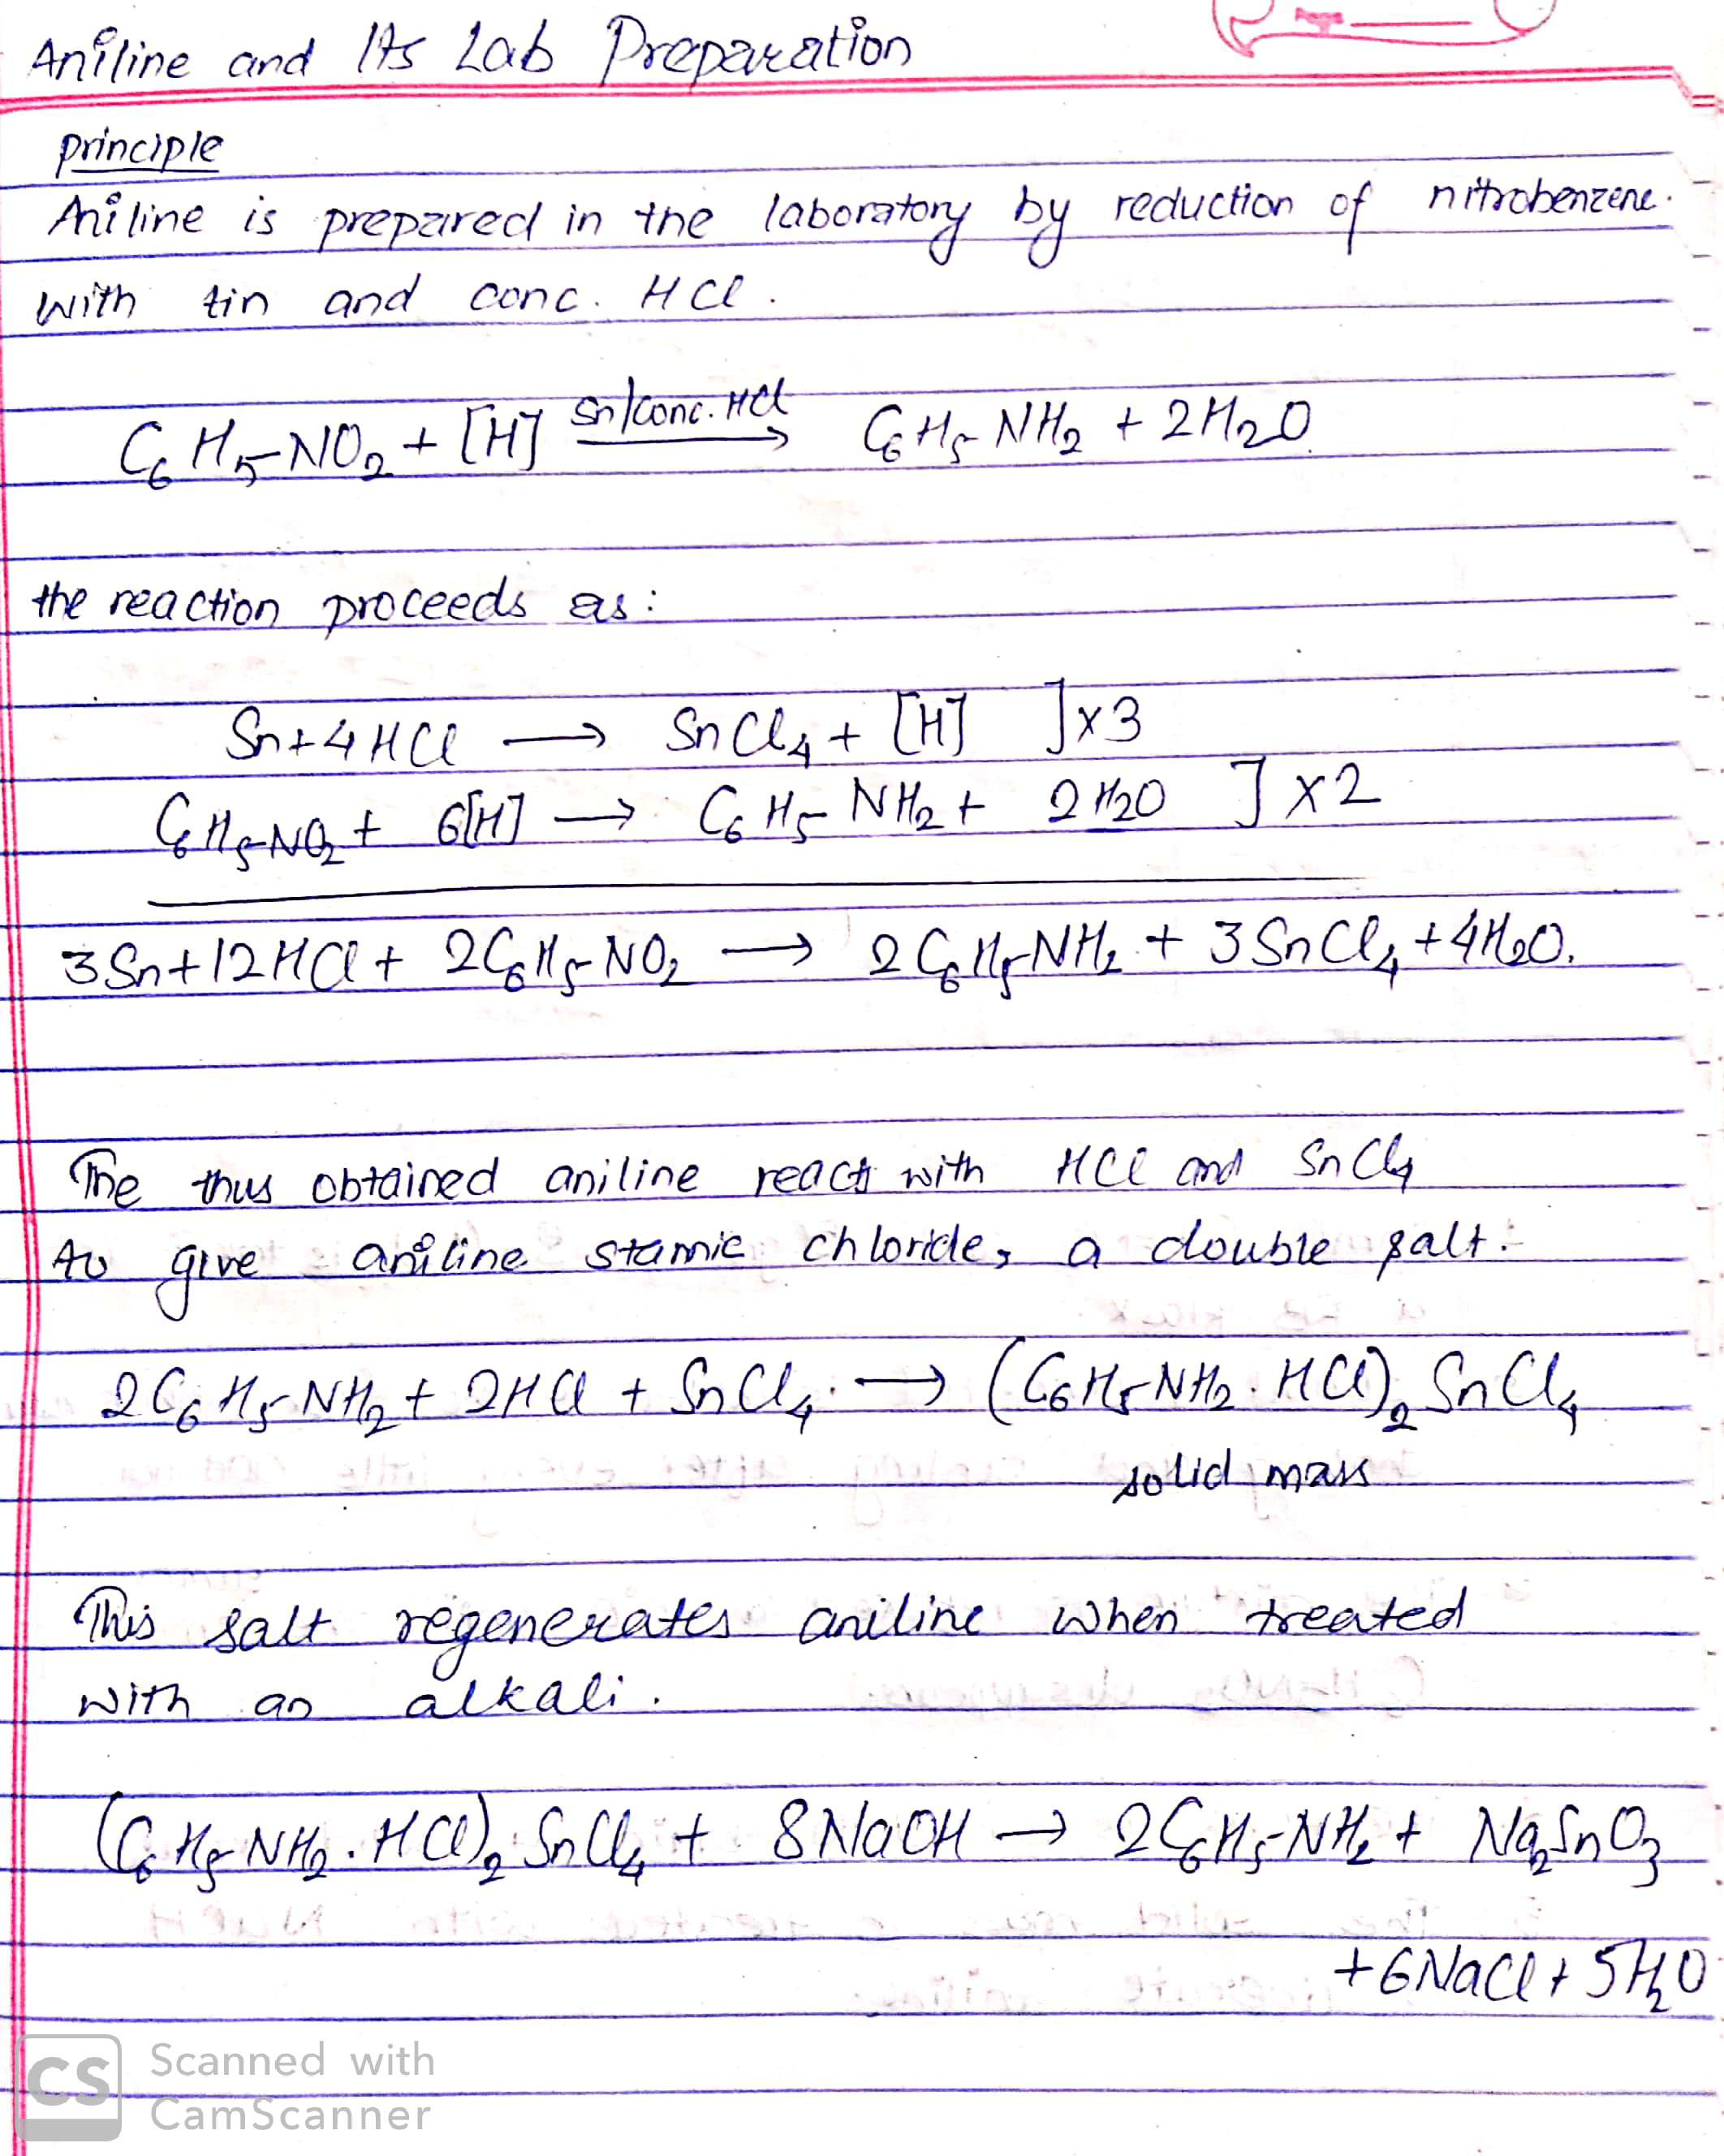 Aniline and Its Lab Preparation
principle
Aniline is prepared in the laboratory by reduction of nitrobenzene.
with tin and conc. HCl.
C₆H₅-NO₂ + [H] Sn/conc. HCl → C₆H₅NH₂ + 2H₂O
the reaction proceeds as:
Sn+4HCl → SnCl₄ + [H] ]x3
C₆H₅-NO₂ + 6[H] → C₆H₅-NH₂ + 2H₂O ]x2
3Sn+12HCl + 2C₆H₅-NO₂ → 2C₆H₅-NH₂ + 3SnCl₄ + 4H₂O.
The thus obtained aniline reacts with HCl and SnCl₄
to give aniline stannic chloride, a double salt.
2C₆H₅-NH₂ + 2HCl + SnCl₄ → (C₆H₅NH₂.HCl)₂SnCl₄
solid mass
This salt regenerates aniline when treated
with an alkali.
(C₆H₅-NH₂.HCl)₂SnCl₄ + 8NaOH → 2C₆H₅-NH₂ + Na₂SnO₃
+6NaCl + 5H₂O
CS Scanned with
CamScanner